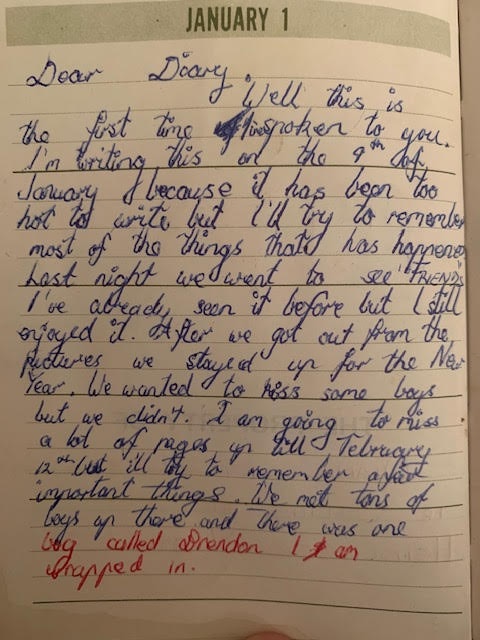 JANUARY 1
Dear Diary,
Well this is
the first time I've spoken to you.
I'm writing this on the 9th of
January because it has been too
hot to write but I'll try to remember
most of the things that has happened
Last night we went to see "FRIENDS"
I've already seen it before but I still
enjoyed it. After we got out from the
pictures we stayed up for the New
Year. We wanted to kiss some boys
but we didn't. I am going to miss
a lot of pages up till February
12th but ill try to remember a few
important things. We met tons of
boys up there and there was one
boy called Brendon I am
wrapped in.